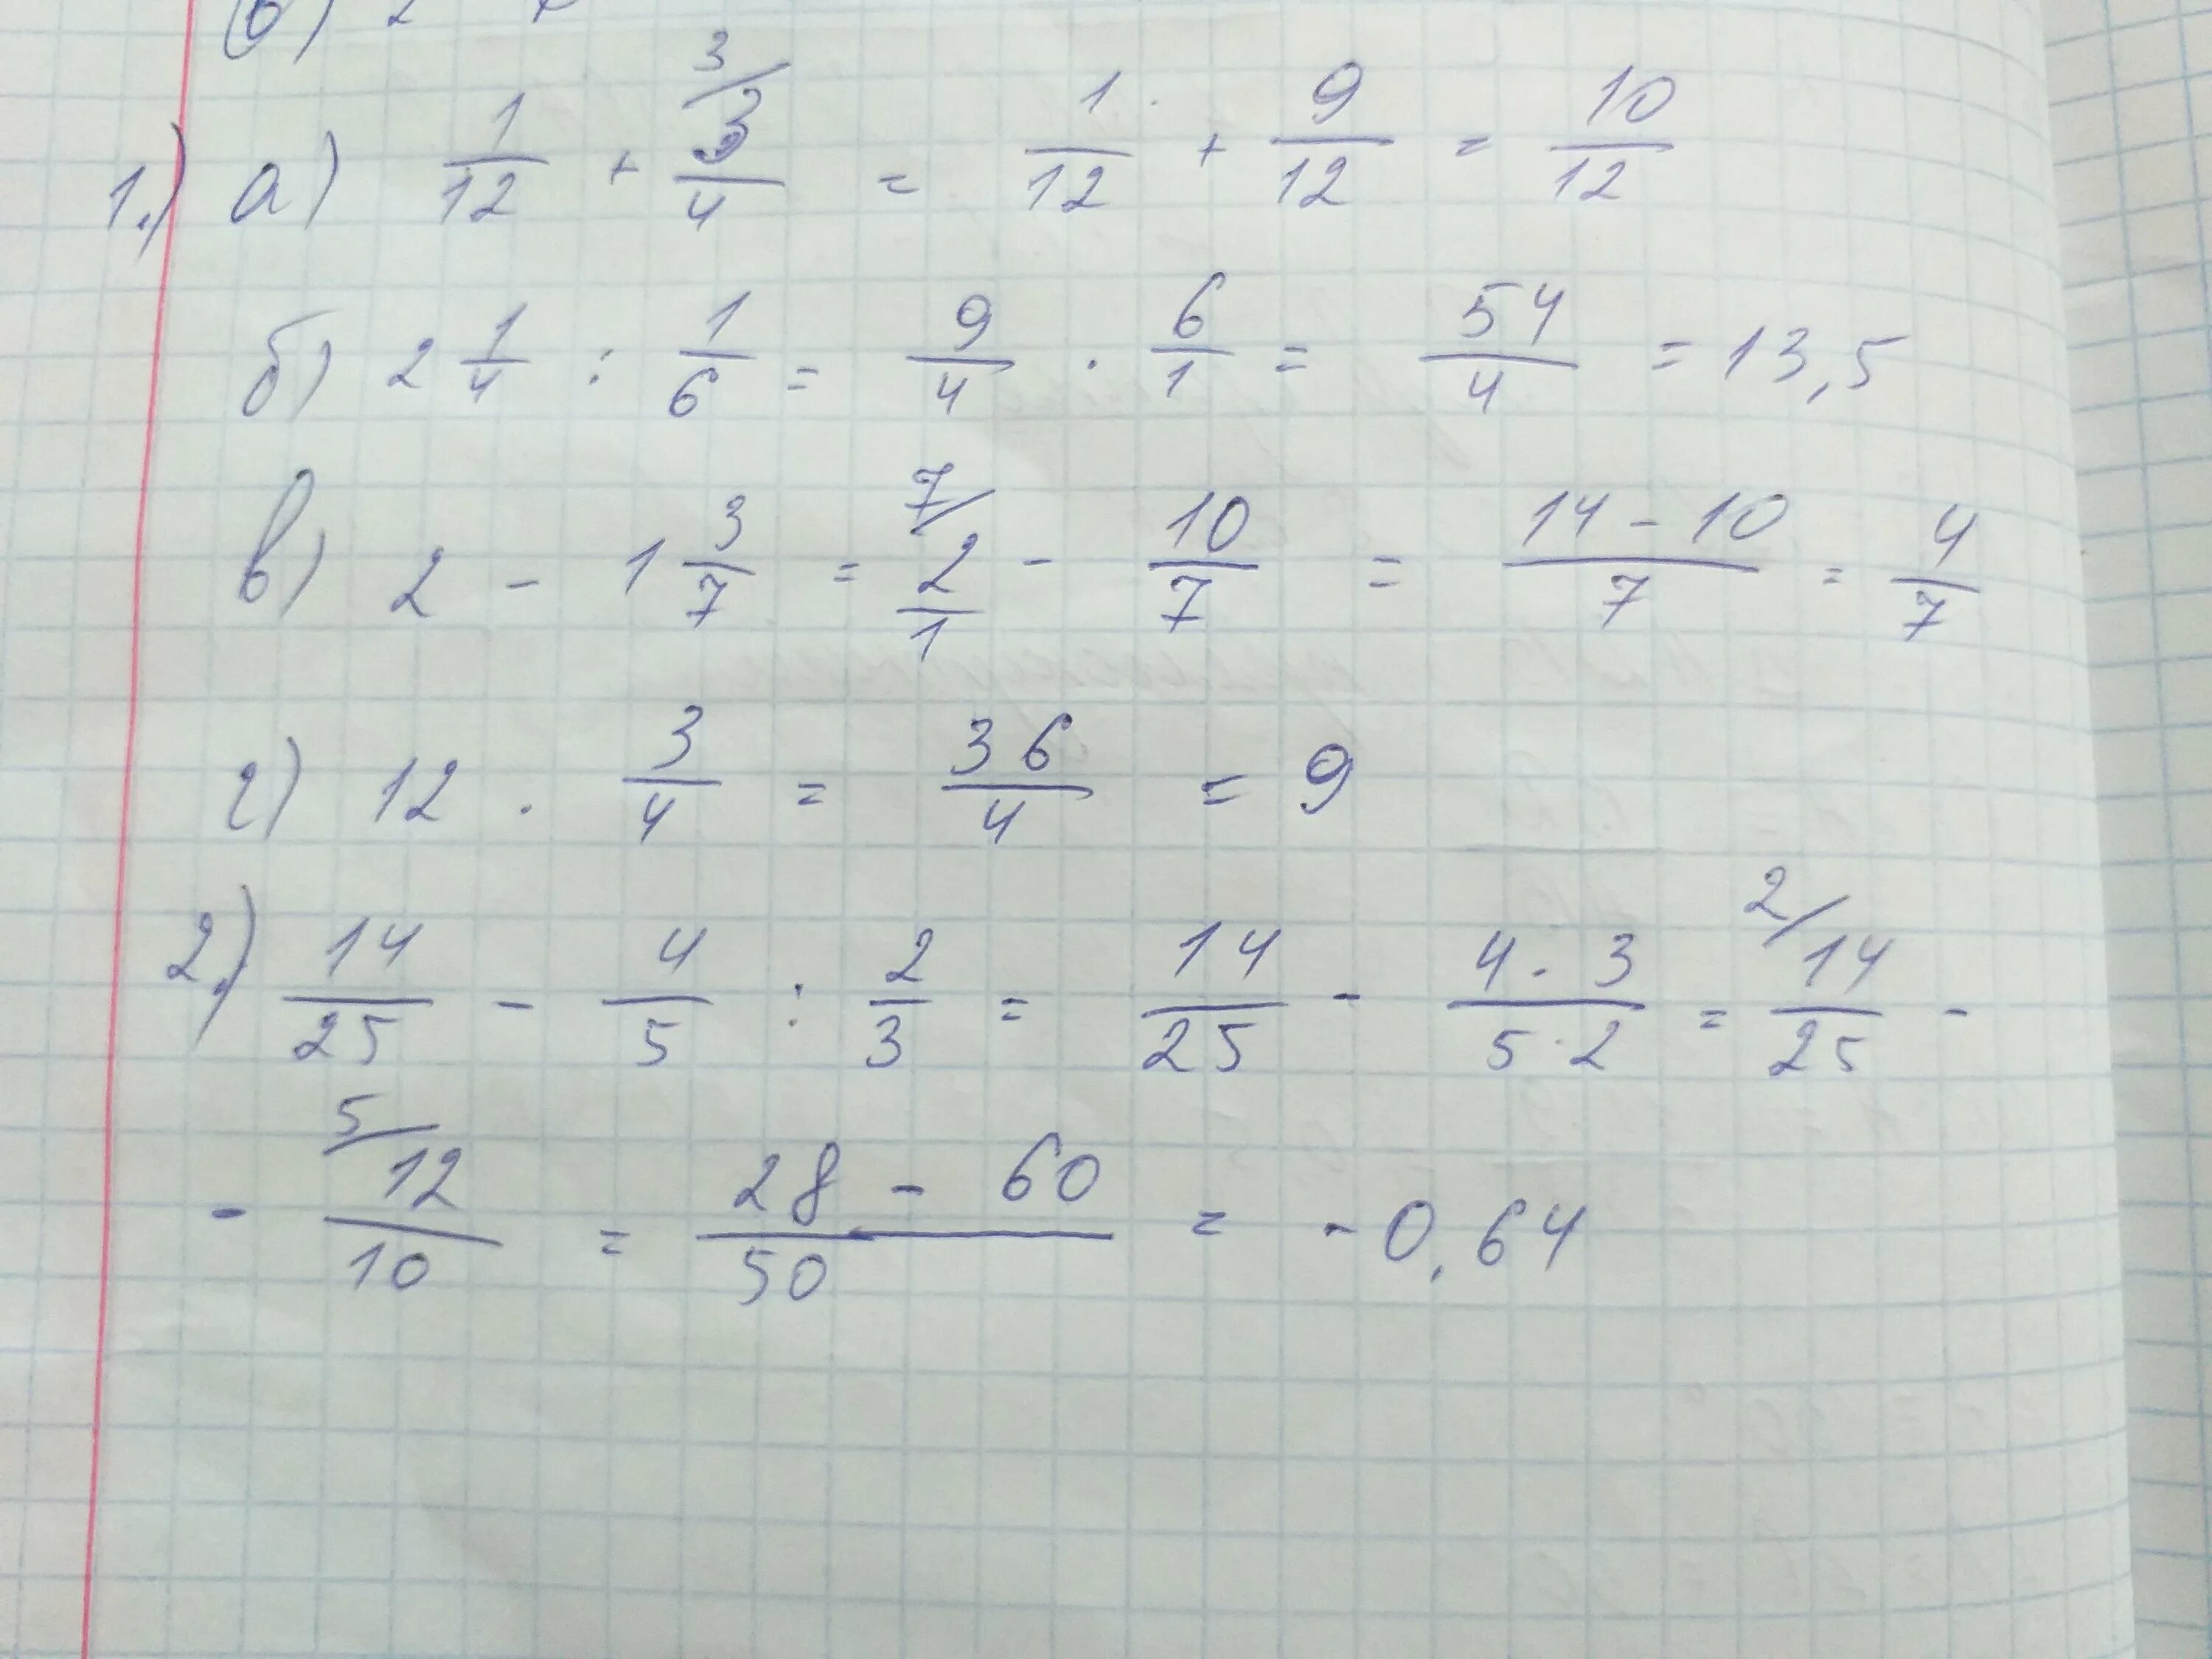 1.) а) 1/12 + 3/ 3/4 = 1/12 + 9/12 = 10/12
б) 2 1/4 : 1/6 = 9/4 · 6/1 = 54/4 = 13,5
в) 2 - 1 3/7 = 7/ 2/1 - 10/7 = 14-10/7 = 4/7
г) 12 · 3/4 = 36/4 = 9
2.) 14/25 - 4/5 : 2/3 = 14/25 - 4·3/5·2 = 2/ 14/25 -
- 5/ 12/10 = 28-60/50 = -0,64